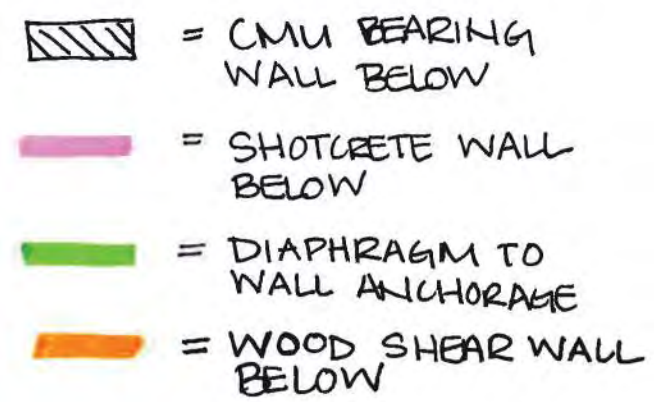 = CMU BEARING
WALL BELOW
= SHOTCRETE WALL
BELOW
= DIAPHRAGM TO
WALL ANCHORAGE
= WOOD SHEAR WALL
BELOW